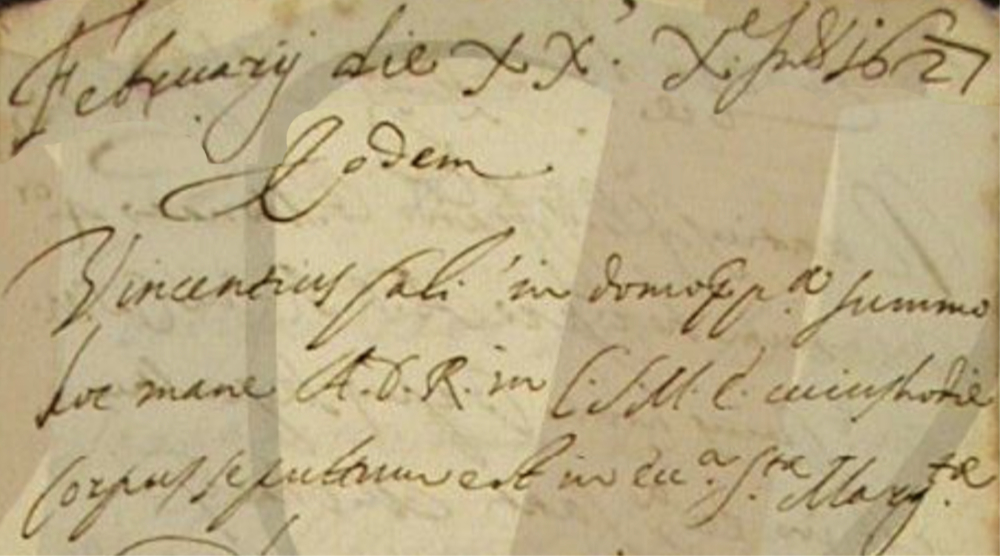 Februarij die XX. X. Ind. 1627
Eodem
Vincentius Sali in domo pp.a summo
hoc mane A.D.R. in C.S.M.E. cuius hodie
corpus sepultum est in ecc.a S.tae Marg.tae